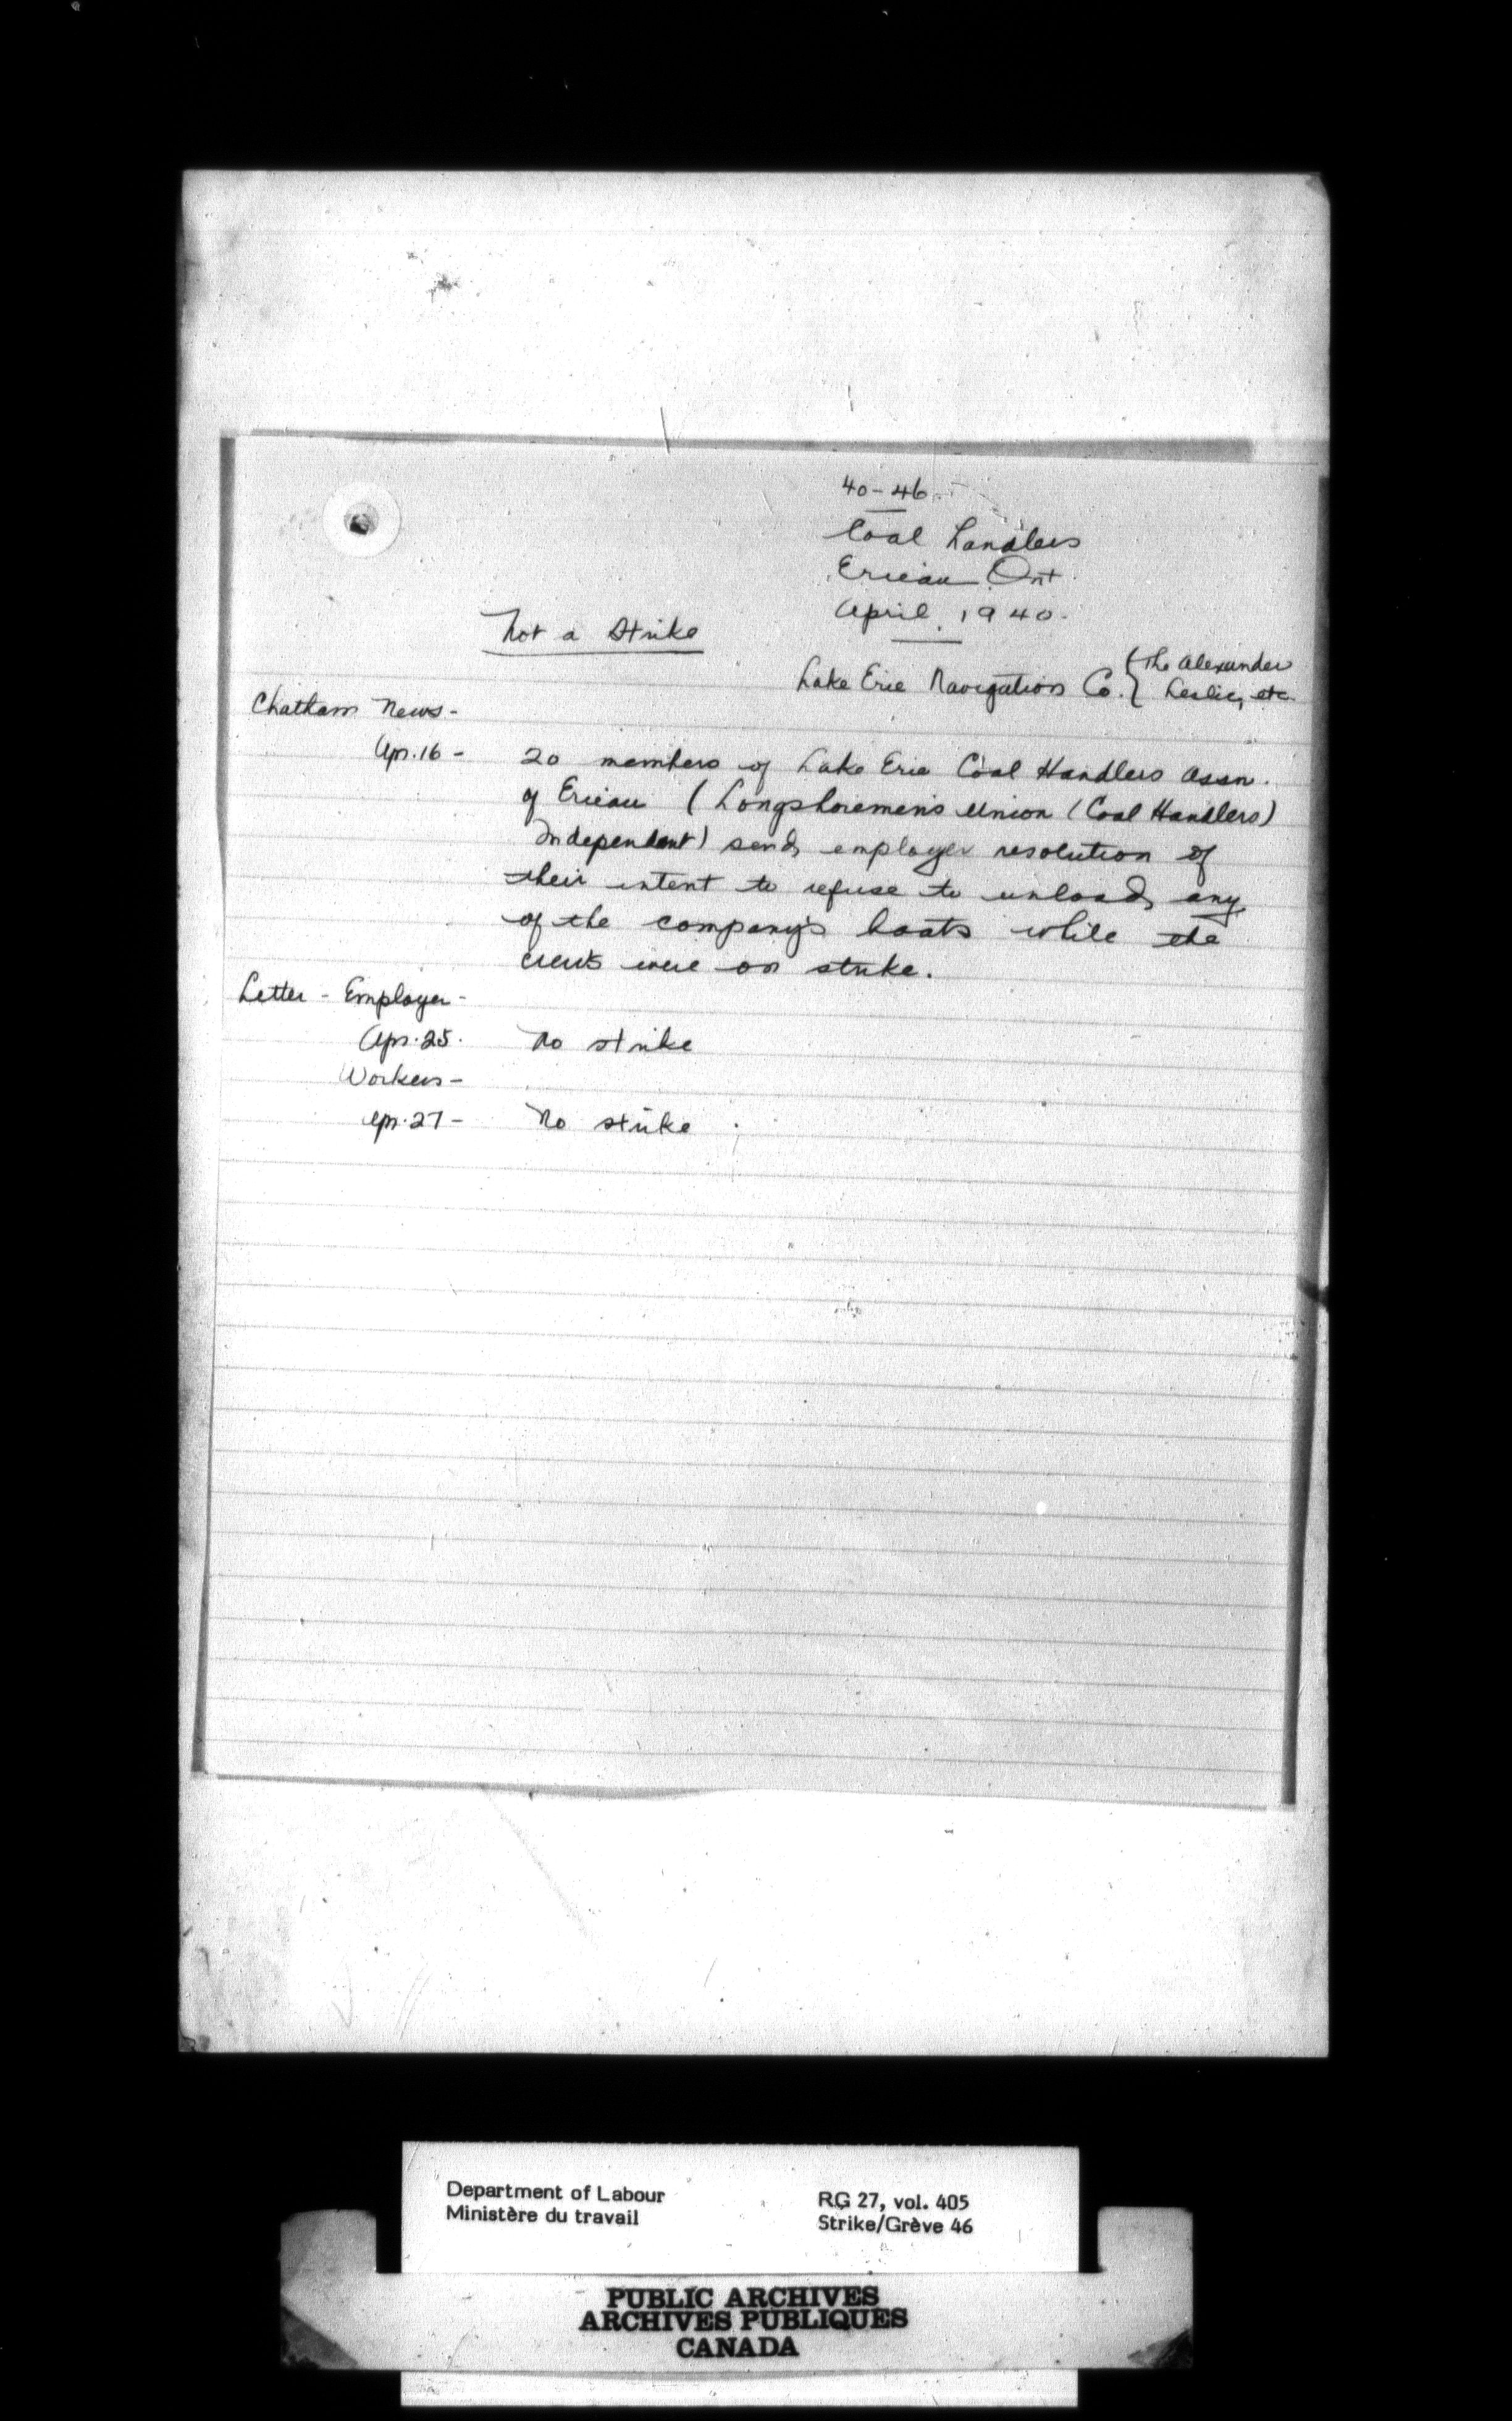 40-46
Coal handlers
Erieau Ont
April, 1940.
Not a Strike
Lake Erie Navigation Co. { The Alexander
Leslie, etc
Chatham News-
Apr. 16 - 20 members of Lake Erie Coal Handlers Assn.
of Erieau (Longshoremen's Union (Coal Handlers)
Independent) send employer resolution of
their intent to refuse to unload any
of the company's boats while the
crews were on strike.
Letter - Employer -
Apr. 25. No strike
Workers -
Apr. 27 - No strike
Department of Labour
Ministère du travail
RG 27, vol. 405
Strike/Grève 46
PUBLIC ARCHIVES
ARCHIVES PUBLIQUES
CANADA